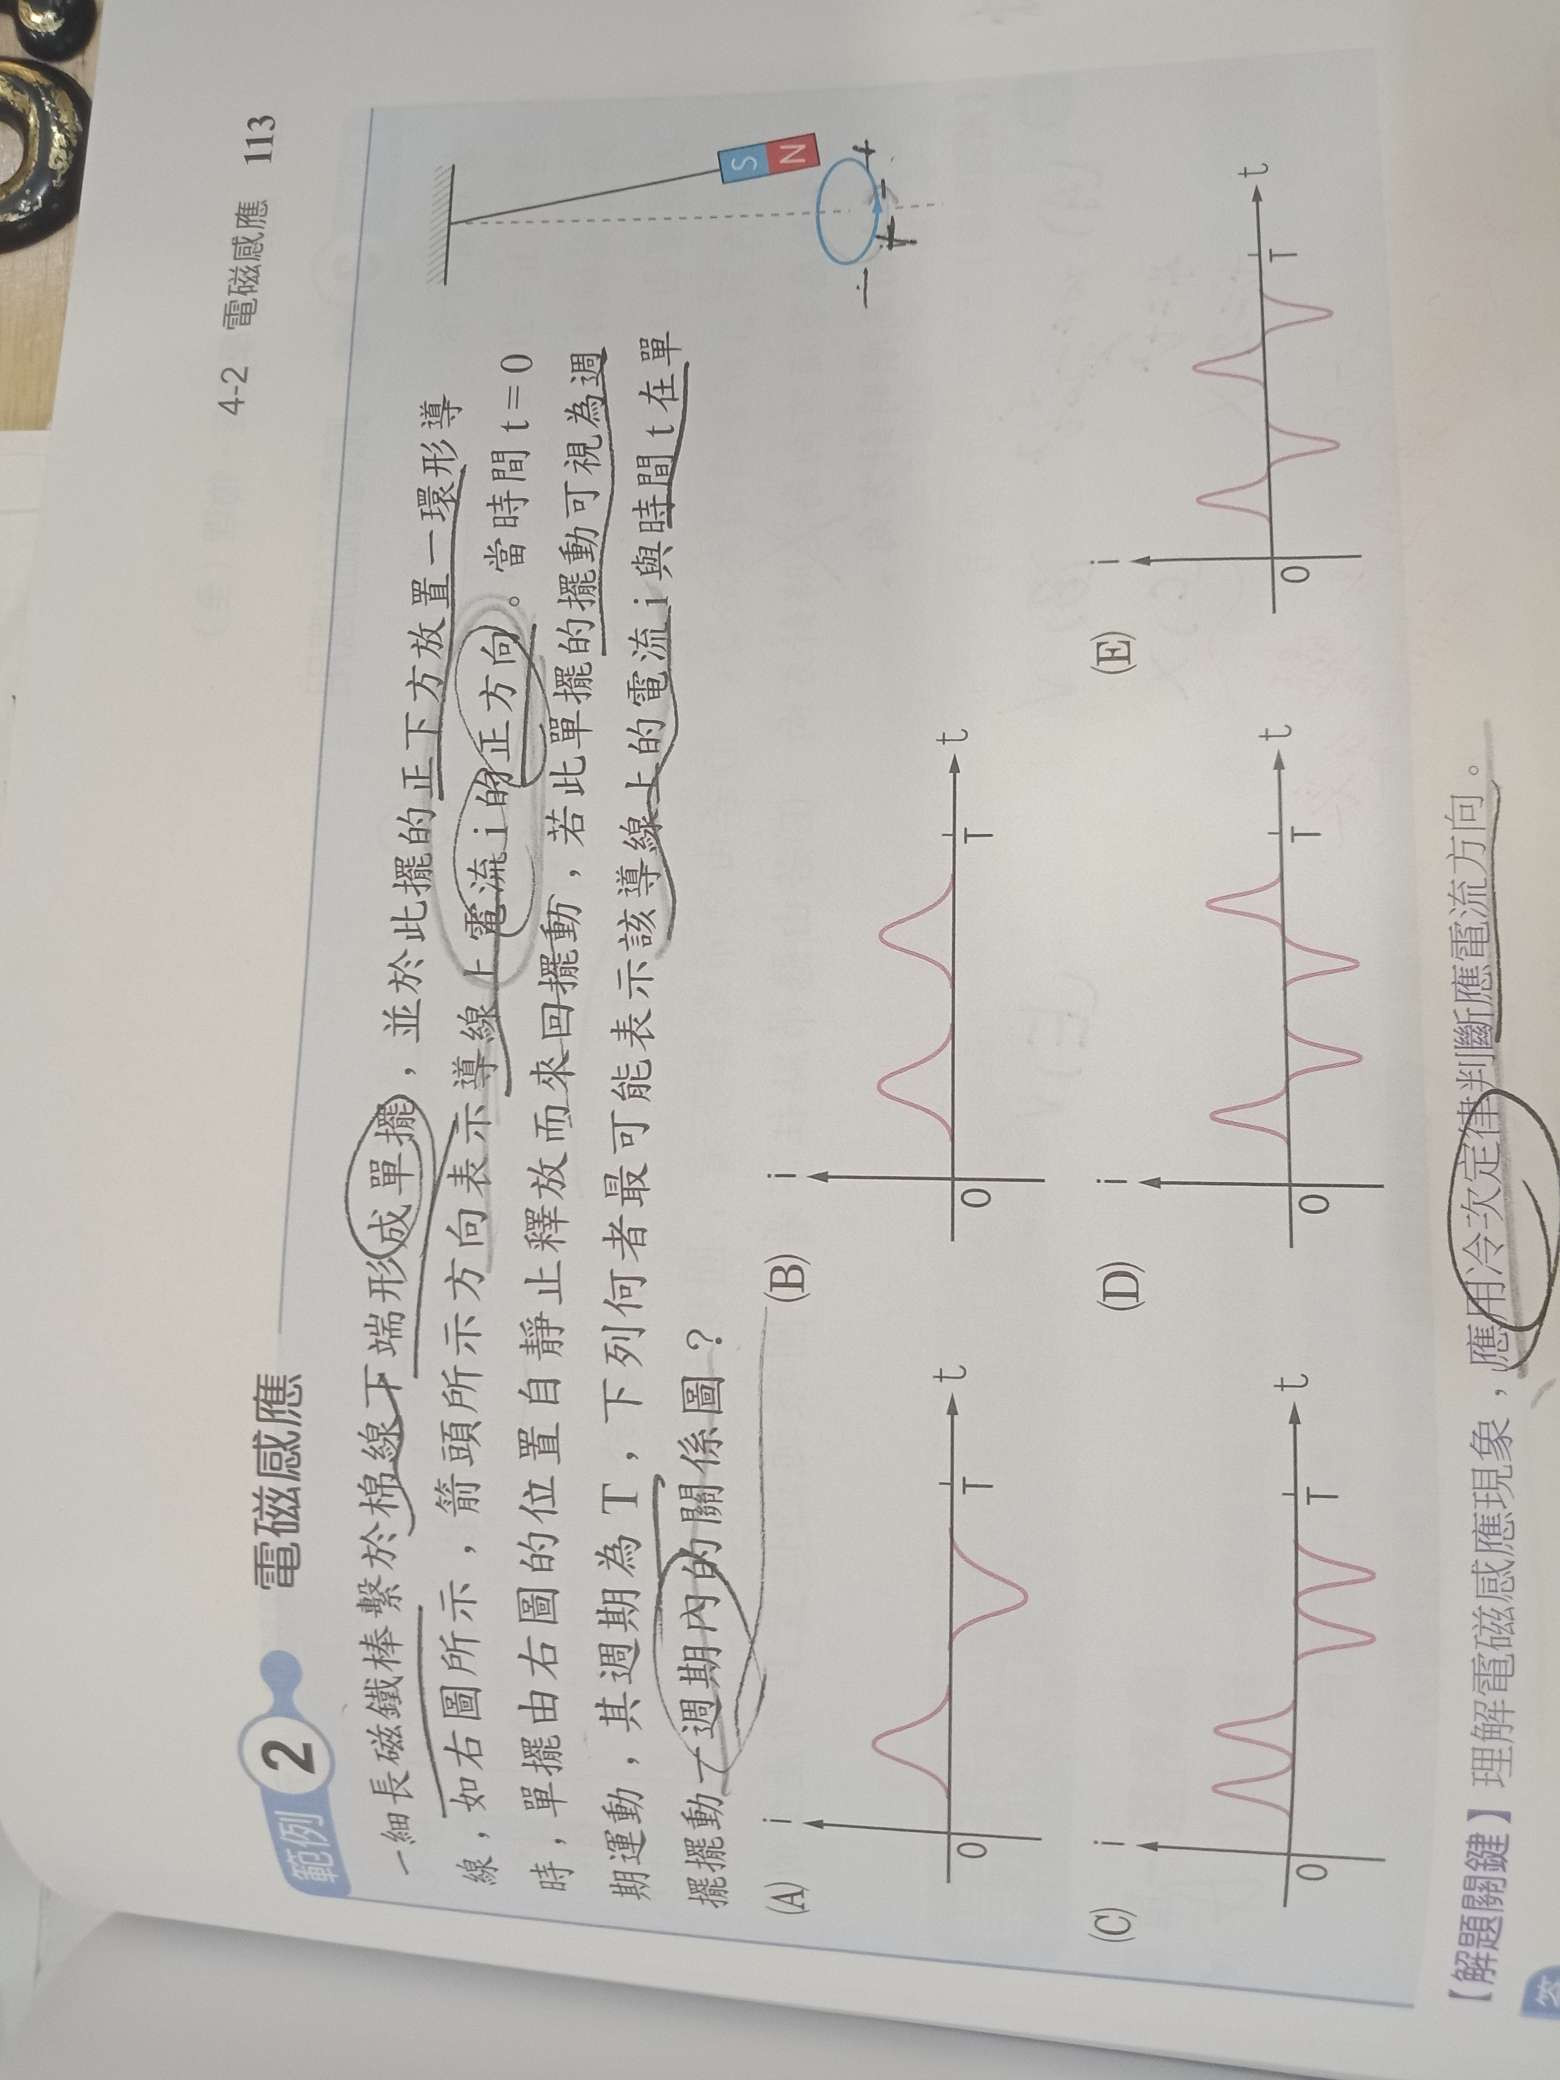 4-2 電磁感應 113
範例 2 電磁感應
一細長磁鐵棒繫於棉線下端形成單擺，並於此擺的正下方放置一環形導
線，如右圖所示，箭頭所示方向表示導線上電流i的正方向。當時間t=0
時，單擺由右圖的位置自靜止釋放而來回擺動，若此單擺的擺動可視為週
期運動，其週期為T，下列何者最可能表示該導線上的電流i與時間t在單
擺擺動一週期內的關係圖？
S
N
− +
+ −
(A) i 0 T t
(B) i 0 T t
(C) i 0 T t
(D) i 0 T t
(E) i 0 T t
【解題關鍵】理解電磁感應現象，應用冷次定律判斷應電流方向。
答